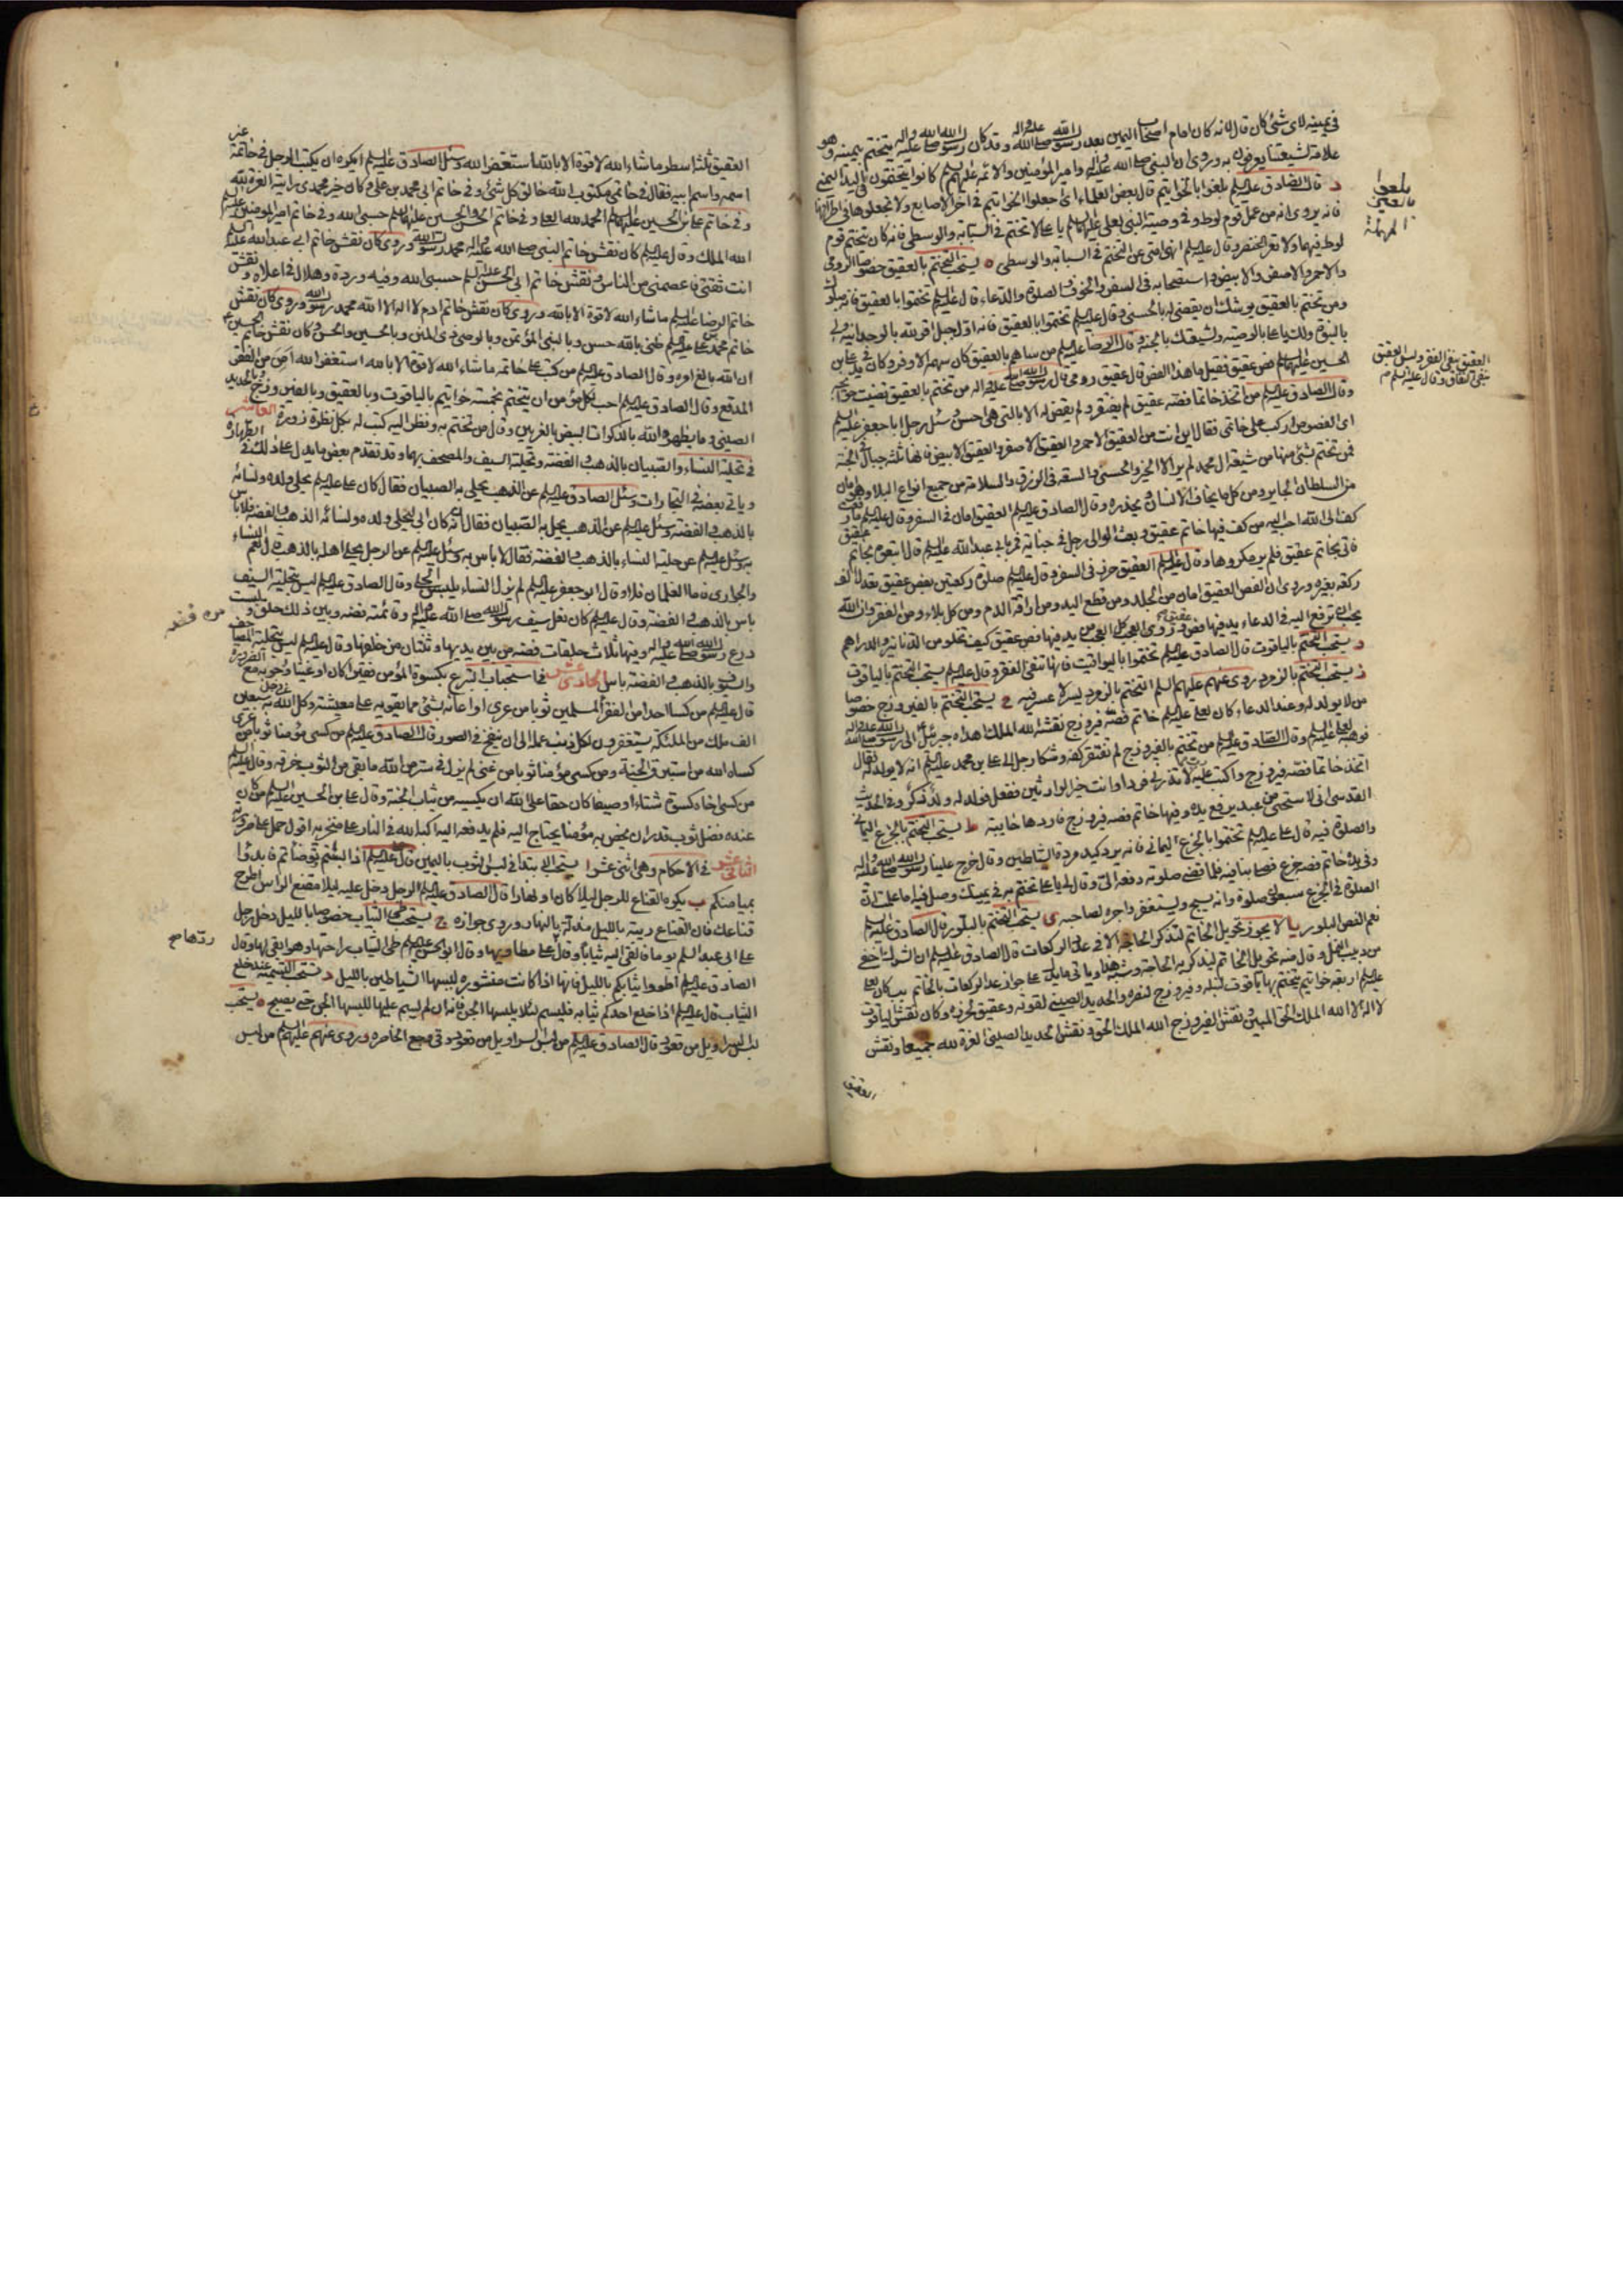 في يمينه لاى شئ كان قال لانه كان امام اصحاب اليمين بعد رسول الله صلى الله عليه واله وقد كان رسول الله صلى الله عليه واله يتختم بيمينه وهو
علامة لشيعتنا يعرفون به وروى ان النبي صلى الله عليه واله وامير المؤمنين والائمه عليهم السلم كانوا يتختمون باليد اليمنى
د قال الصادق عليه السلم بلغوا بالخواتيم قال بعض العلماء اى اجعلوا الخواتيم في اخر الاصابع ولا تجعلوها في اطرافها
فانه يروى انه من عمل قوم لوط وفي وصية النبي لعلي عليهما السلم يا على لا تختم في السبابه والوسطى فانه كان يتختم قوم
لوط فيهما ولا تعر الخنصر وقال عليه السلم انهى امتى عن التختم في السبابه والوسطى ه يستحب التختم بالعقيق خصوصا الرومى
والاحمر والاصفر والابيض واستصحابه في السفر والخوف والصلوة والدعاء قال عليه السلم تختموا بالعقيق فانه مبارك
ومن تختم بالعقيق يوشك ان يقضى له بالحسنى وقال عليه السلم تختموا بالعقيق فانه اول جبل اقر لله بالوحدانية ولى
بالنبوة ولك يا على بالوصية ولشيعتك بالجنة وقال الرضا عليه السلم من ساهم بالعقيق كان سهمه الاوفر وكان في يد على بن
الحسين عليهما السلم فص عقيق فقيل ما هذا الفص قال عقيق رومى قال رسول الله صلى الله عليه واله من تختم بالعقيق قضيت حوائجه
وقال الصادق عليه السلم من اتخذ خاتما فصه عقيق لم يفتقر ولم يقض له الا بالتي هي احسن وسئل رجل ابا جعفر عليه السلم
اى الفصوص اركب على خاتمى فقال اين انت من العقيق الاحمر والعقيق الاصفر والعقيق الابيض فانها ثلثة جبال في الجنة
فمن تختم بشئ منها من شيعة ال محمد لم ير الا الخير والحسنى والسعة في الرزق والسلامة من جميع انواع البلاء وهو امان
من السلطان الجاير ومن كل ما يخاف الانسان ويحذره وقال الصادق عليه السلم العقيق امان في السفر وقال عليه السلم ما رفعت
كف الى الله احب اليه من كف فيها خاتم عقيق وبعث الوالى رجل في جناية فمر بابي عبد الله عليه السلم قال اتبعوه بخاتم عقيق
فاتى بخاتم عقيق فلم ير مكروها وقال عليه السلم العقيق حرز في السفر وقال عليه السلم صلوة ركعتين بفص عقيق تعدل الف
ركعة بغيره وروى ان الفص العقيق امان من الجلد ومن قطع اليد ومن اراقة الدم ومن كل بلاء ومن الفقر وان الله
يحب ان ترفع اليه في الدعاء يد فيها فص عقيق وروى العجب كل العجب من يد فيها فص عقيق كيف تخلو من الدنانير والدراهم
و يستحب التختم بالياقوت قال الصادق عليه السلم تختموا باليواقيت فانها تنفى الفقر وقال عليه السلم يستحب التختم بالياقوت
ز يستحب التختم بالزمرد روى عنهم عليهم السلم التختم بالزمرد يسر لا عسر فيه ح يستحب التختم بالفيروزج خصوصا
من لا يولد له وعند الدعاء كان لعلى عليه السلم خاتم فصه فيروزج نقشه الله الملك اهداه جبرئيل الى رسول الله صلى الله عليه واله
فوهبه لعلى عليه السلم وقال الصادق عليه السلم من تختم بالفيروزج لم تفتقر كفه وشكا رجل الى على بن محمد عليه السلم انه لا يولد له فقال
اتخذ خاتما فصه فيروزج واكتب عليه رب لا تذرني فردا وانت خير الوارثين ففعل فولد له ولد ذكر وفي الحديث
القدسى انى لاستحيي من عبد يرفع يده وفيها خاتم فصه فيروزج فاردها خايبة ط يستحب التختم بالجزع اليمانى
والصلوة فيه قال على عليه السلم تختموا بالجزع اليمانى فانه يرد كيد مردة الشياطين وقال خرج علينا رسول الله صلى الله عليه واله
وفي يده خاتم فصه جزع فصلى بنا فيه فلما قضى صلوته دفعه الى وقال لى يا على تختم به في يمينك وصل فيه اما علمت ان
الصلوة في الجزع سبعون صلوة وانه يسبح ويستغفر واجره لصاحبه ى يستحب التختم بالبلور قال الصادق عليه السلم
نعم الفص البلور يا لا يجوز تحويل الخاتم لتذكر الحاجة الا في عدد الركعات قال الصادق عليه السلم ان الشرك اخفى
من دبيب النمل وقال منه تحويل الخاتم ليذكر به الحاجة وشبه هذا وياتى ما يدل على جواز عد الركعات بالخاتم يب كان لعلى
عليه السلم اربعة خواتيم يتختم بها ياقوت لنبله وفيروزج لنصره والحديد الصينى لقوته وعقيق لحرزه وكان نقش الياقوت
لا اله الا الله الملك الحق المبين ونقش الفيروزج الله الملك الحق ونقش الحديد الصينى العزة لله جميعا ونقش
العقيق
بلعوا
بالعين
المهملة
العقيق ينفى الفقر ولبس العقيق
ينفى النفاق وقال عليه السلم م
العقيق ثلثة اسطر ما شاء الله لا قوة الا بالله استغفر الله وسئل الصادق عليه السلم ايكره ان يكتب الرجل في خاتمه غير
اسمه واسم ابيه فقال في خاتمى مكتوب الله خالق كل شئ وفي خاتم ابى محمد بن على وكان خير محمدى رايته العزة لله
وفي خاتم على بن الحسين عليهما السلم الحمد لله العلى وفي خاتم الحسن والحسين عليهما السلم حسبى الله وفي خاتم امير المؤمنين عليه السلم
الله الملك وقال عليه السلم كان نقش خاتم النبي صلى الله عليه واله محمد رسول الله وروى كان نقش خاتم ابى عبد الله عليه السلم
انت ثقتى فاعصمنى من الناس ونقش خاتم ابى الحسن عليه السلم حسبى الله وفيه وردة وهلال في اعلاه ونقش
خاتم الرضا عليه السلم ما شاء الله لا قوة الا بالله وروى كان نقش خاتم ادم لا اله الا الله محمد رسول الله وروى كان نقش
خاتم محمد بن على عليه السلم ظنى بالله حسن وبالنبي المؤتمن وبالوصى ذى المنن وبالحسين والحسن وكان نقش خاتم الحسين
ان الله بالغ امره وقال الصادق عليه السلم من كتب على خاتمه ما شاء الله لا قوة الا بالله استغفر الله امن من الفقر
المدقع وقال الصادق عليه السلم احب لكل مؤمن ان يتختم بخمسة خواتيم بالياقوت وبالعقيق وبالفيروزج وبالحديد
الصينى وما يظهره الله بالذكوات البيض بالغريين وقال من تختم به ونظر اليه كتب له بكل نظرة زورة العاشر
في تحلية النساء والصبيان بالذهب والفضة وتحلية السيف والمصحف بهما وقد تقدم بعض ما يدل على ذلك في الطهارة
وياتى بعضه في التجارات وسئل الصادق عليه السلم عن الذهب يحلى به الصبيان فقال كان على عليه السلم يحلى ولده ونسائه
بالذهب والفضة وسئل عليه السلم عن الذهب يحلى به الصبيان فقال انه كان ابى ليحلى ولده ونسائه الذهب والفضة فلا باس
به وسئل عليه السلم عن حلية النساء بالذهب والفضة فقال لا باس به وسئل عليه السلم عن الرجل يحلى اهله بالذهب قال نعم النساء
والجوارى فاما الغلمان فلا وقال ابو جعفر عليه السلم لم يزل النساء يلبسن الحلى وقال الصادق عليه السلم ليس بتحلية السيف
باس بالذهب والفضة وقال عليه السلم كان نعل سيف رسول الله صلى الله عليه واله وقائمته فضه وبين ذلك حلق و
درع رسول الله صلى الله عليه واله وفيها ثلاث حلقات فضه من بين يديها وثنتان من خلفها وقال عليه السلم ليس بتحلية المصاحف
والسيوف بالذهب والفضة باس الحادى عشر في استحباب التبرع بكسوة المؤمن فقيرا كان او غنيا وجوبه مع الضرورة
قال عليه السلم من كسا احدا من فقراء المسلمين ثوبا من عرى او اعانه بشئ مما يقويه على معيشته وكل الله به سبعين
الف ملك من الملئكة يستغفرون لكل ذنب عمله الى ان ينفخ في الصور وقال الصادق عليه السلم من كسى مؤمنا ثوبا من عرى
كساه الله من استبرق الجنة ومن كسى مؤمنا ثوبا من غنى لم يزل في ستر من الله ما بقى من الثوب خرقه وقال عليه السلم
من كسى اخاه كسوة شتاء او صيف كان حقا على الله ان يكسيه من ثياب الجنة وقال على بن الحسين عليه السلم من كان
عنده فضل ثوب قدر ان يخص به مؤمنا يحتاج اليه فلم يدفعه اليه اكبه الله في النار على منخريه
الثانى عشر في الاحكام وهي اثنى عشر ا يستحب الابتداء في لبس الثوب باليمين قال عليه السلم اذا لبستم وتوضاتم فابدؤا
بميامنكم ب يكره القناع للرجل ليلا كان او نهارا قال الصادق عليه السلم لرجل دخل عليه ليلا مقنع الراس اطرح
قناعك فان القناع ريبة بالليل مذلة بالنهار وروى جوازه ج يستحب طى الثياب خصوصا بالليل دخل رجل
على ابى عبد الله يوما فالقى اليه ثيابا وقال على مطاويها وقال ابو الحسن عليه السلم طى الثياب راحتها وهو ابقى لها وقال
الصادق عليه السلم اطووا ثيابكم بالليل فانها اذا كانت منشوره لبسها الشياطين بالليل د تستحب التسمية عند خلع
الثياب قال عليه السلم اذا خلع احدكم ثيابه فليسم لئلا يلبسها الجن فانه ان لم يسم عليها لبسها الجن حتى يصبح ه يستحب
لبس السراويل من قعود قال الصادق عليه السلم من لبس السراويل من قعود وقى وجع الخاصره وروى عنهم عليهم السلم من لبس
من فضه
ردها صح